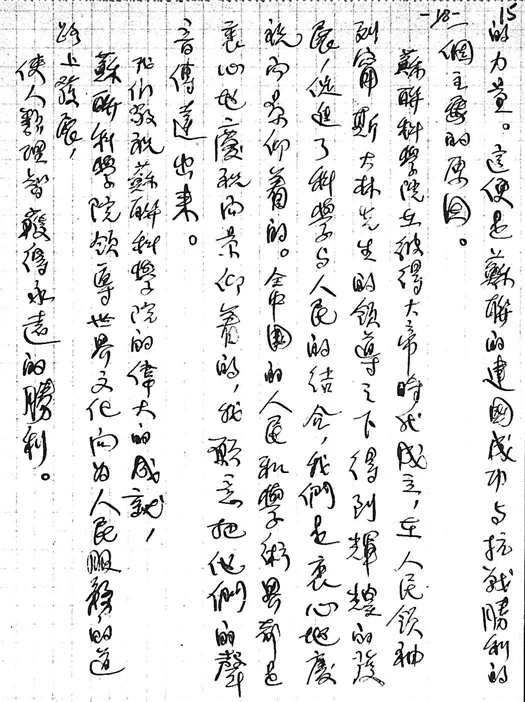 15
-18-
的力量。這便是蘇聯的建國成功与抗战勝利的
一個主要的原因。
蘇聯科學院在彼得大帝時代成立，在人民領袖
列寧斯大林先生的領導之下得到輝煌的發
展，促進了科學与人民的結合，我們是衷心地慶
祝而景仰着的。全中國的人民和學術界都是
衷心地慶祝而景仰着的，我願意把他們的聲
音傳達出来。
我们敬祝蘇聯科學院的偉大的成就，
蘇聯科學院領導世界文化向为人民服務的道
路上發展，
使人類理智獲得永遠的勝利。